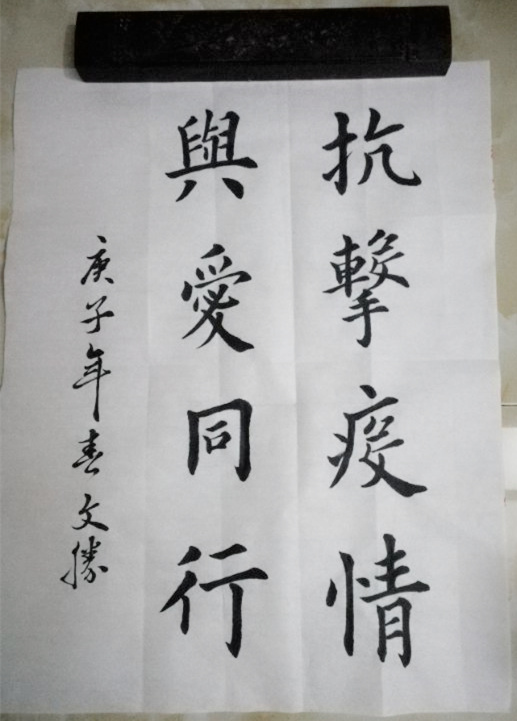 抗擊疫情
與愛同行
庚子年春文勝